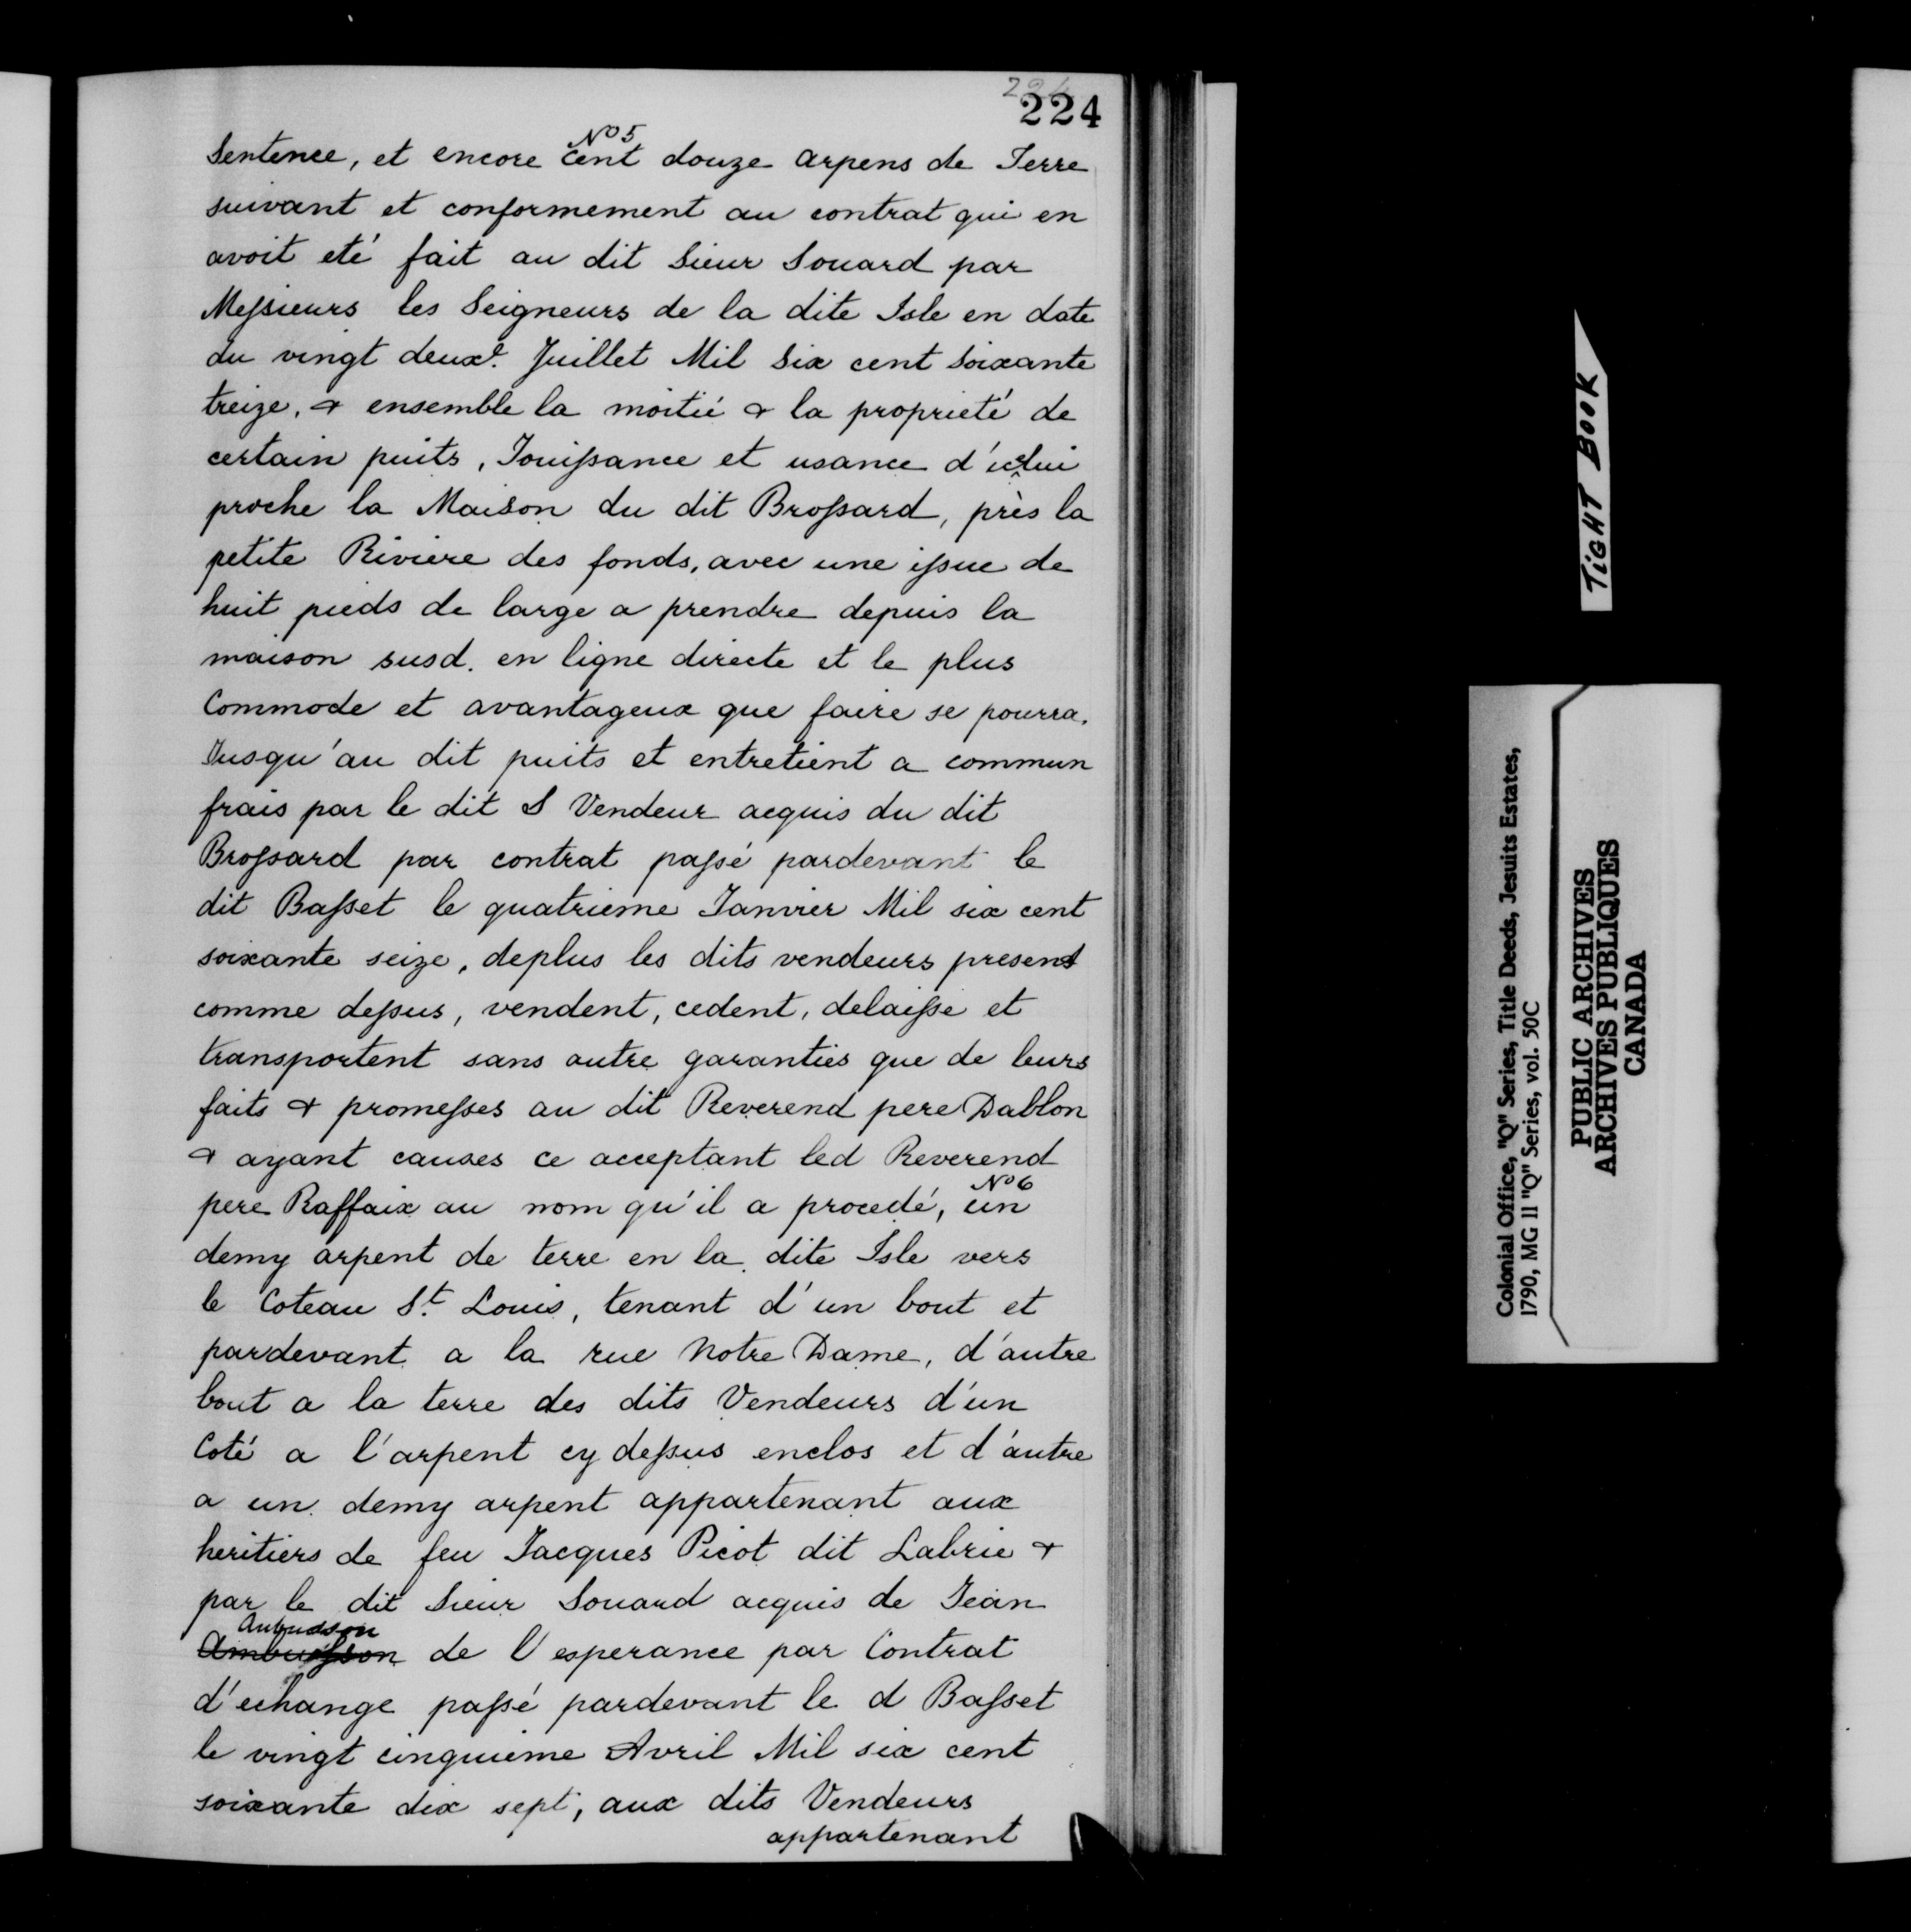 224
224
No 5
Sentence, et encore cent douze arpens de Terre
suivant et conformement au contrat qui en
avoit eté fait au dit Sieur Souard par
Messieurs les Seigneurs de la dite Isle en date
du vingt deux.e Juillet Mil Six cent soixante
treize, & ensemble la moitié & la proprieté de
certain puits, Jouissance et usance d'icelui
proche la Maison du dit Brossard, près la
petite Riviere des fonds, avec une issue de
huit pieds de large a prendre depuis la
maison susd. en ligne directe et le plus
Commode et avantageux que faire se pourra,
Jusqu'au dit puits et entretient a commun
frais par le dit S Vendeur acquis du dit
Brossard par contrat passé pardevant le
dit Basset le quatrieme Janvier Mil six cent
soixante seize, deplus les dits vendeurs present
comme dessus, vendent, cedent, delaisse et
transportent sans autre garanties que de leurs
faits & promesses au dit Reverend pere Dablon
& ayant causes ce acceptant led Reverend
No 6
pere Raffaix au nom qu'il a procedé, un
demy arpent de terre en la dite Isle vers
le Coteau St. Louis, tenant d'un bout et
pardevant a la rue Notre Dame, d'autre
bout a la terre des dits Vendeurs d'un
Coté a l'arpent cy dessus enclos et d'autre
a un demy arpent appartenant aux
heritiers de feu Jacques Picot dit Labrie &
par le dit Sieur Souard acquis de Jean
Aubudson
Ambuisson de l'esperance par Contrat
d'echange passé pardevant le d Basset
le vingt cinquieme Avril Mil six cent
soixante dix sept, aux dits Vendeurs
appartenant
TIGHT BOOK
Colonial Office, "Q" Series, Title Deeds, Jesuits Estates,
1790, MG 11 "Q" Series, vol. 50C
PUBLIC ARCHIVES
ARCHIVES PUBLIQUES
CANADA